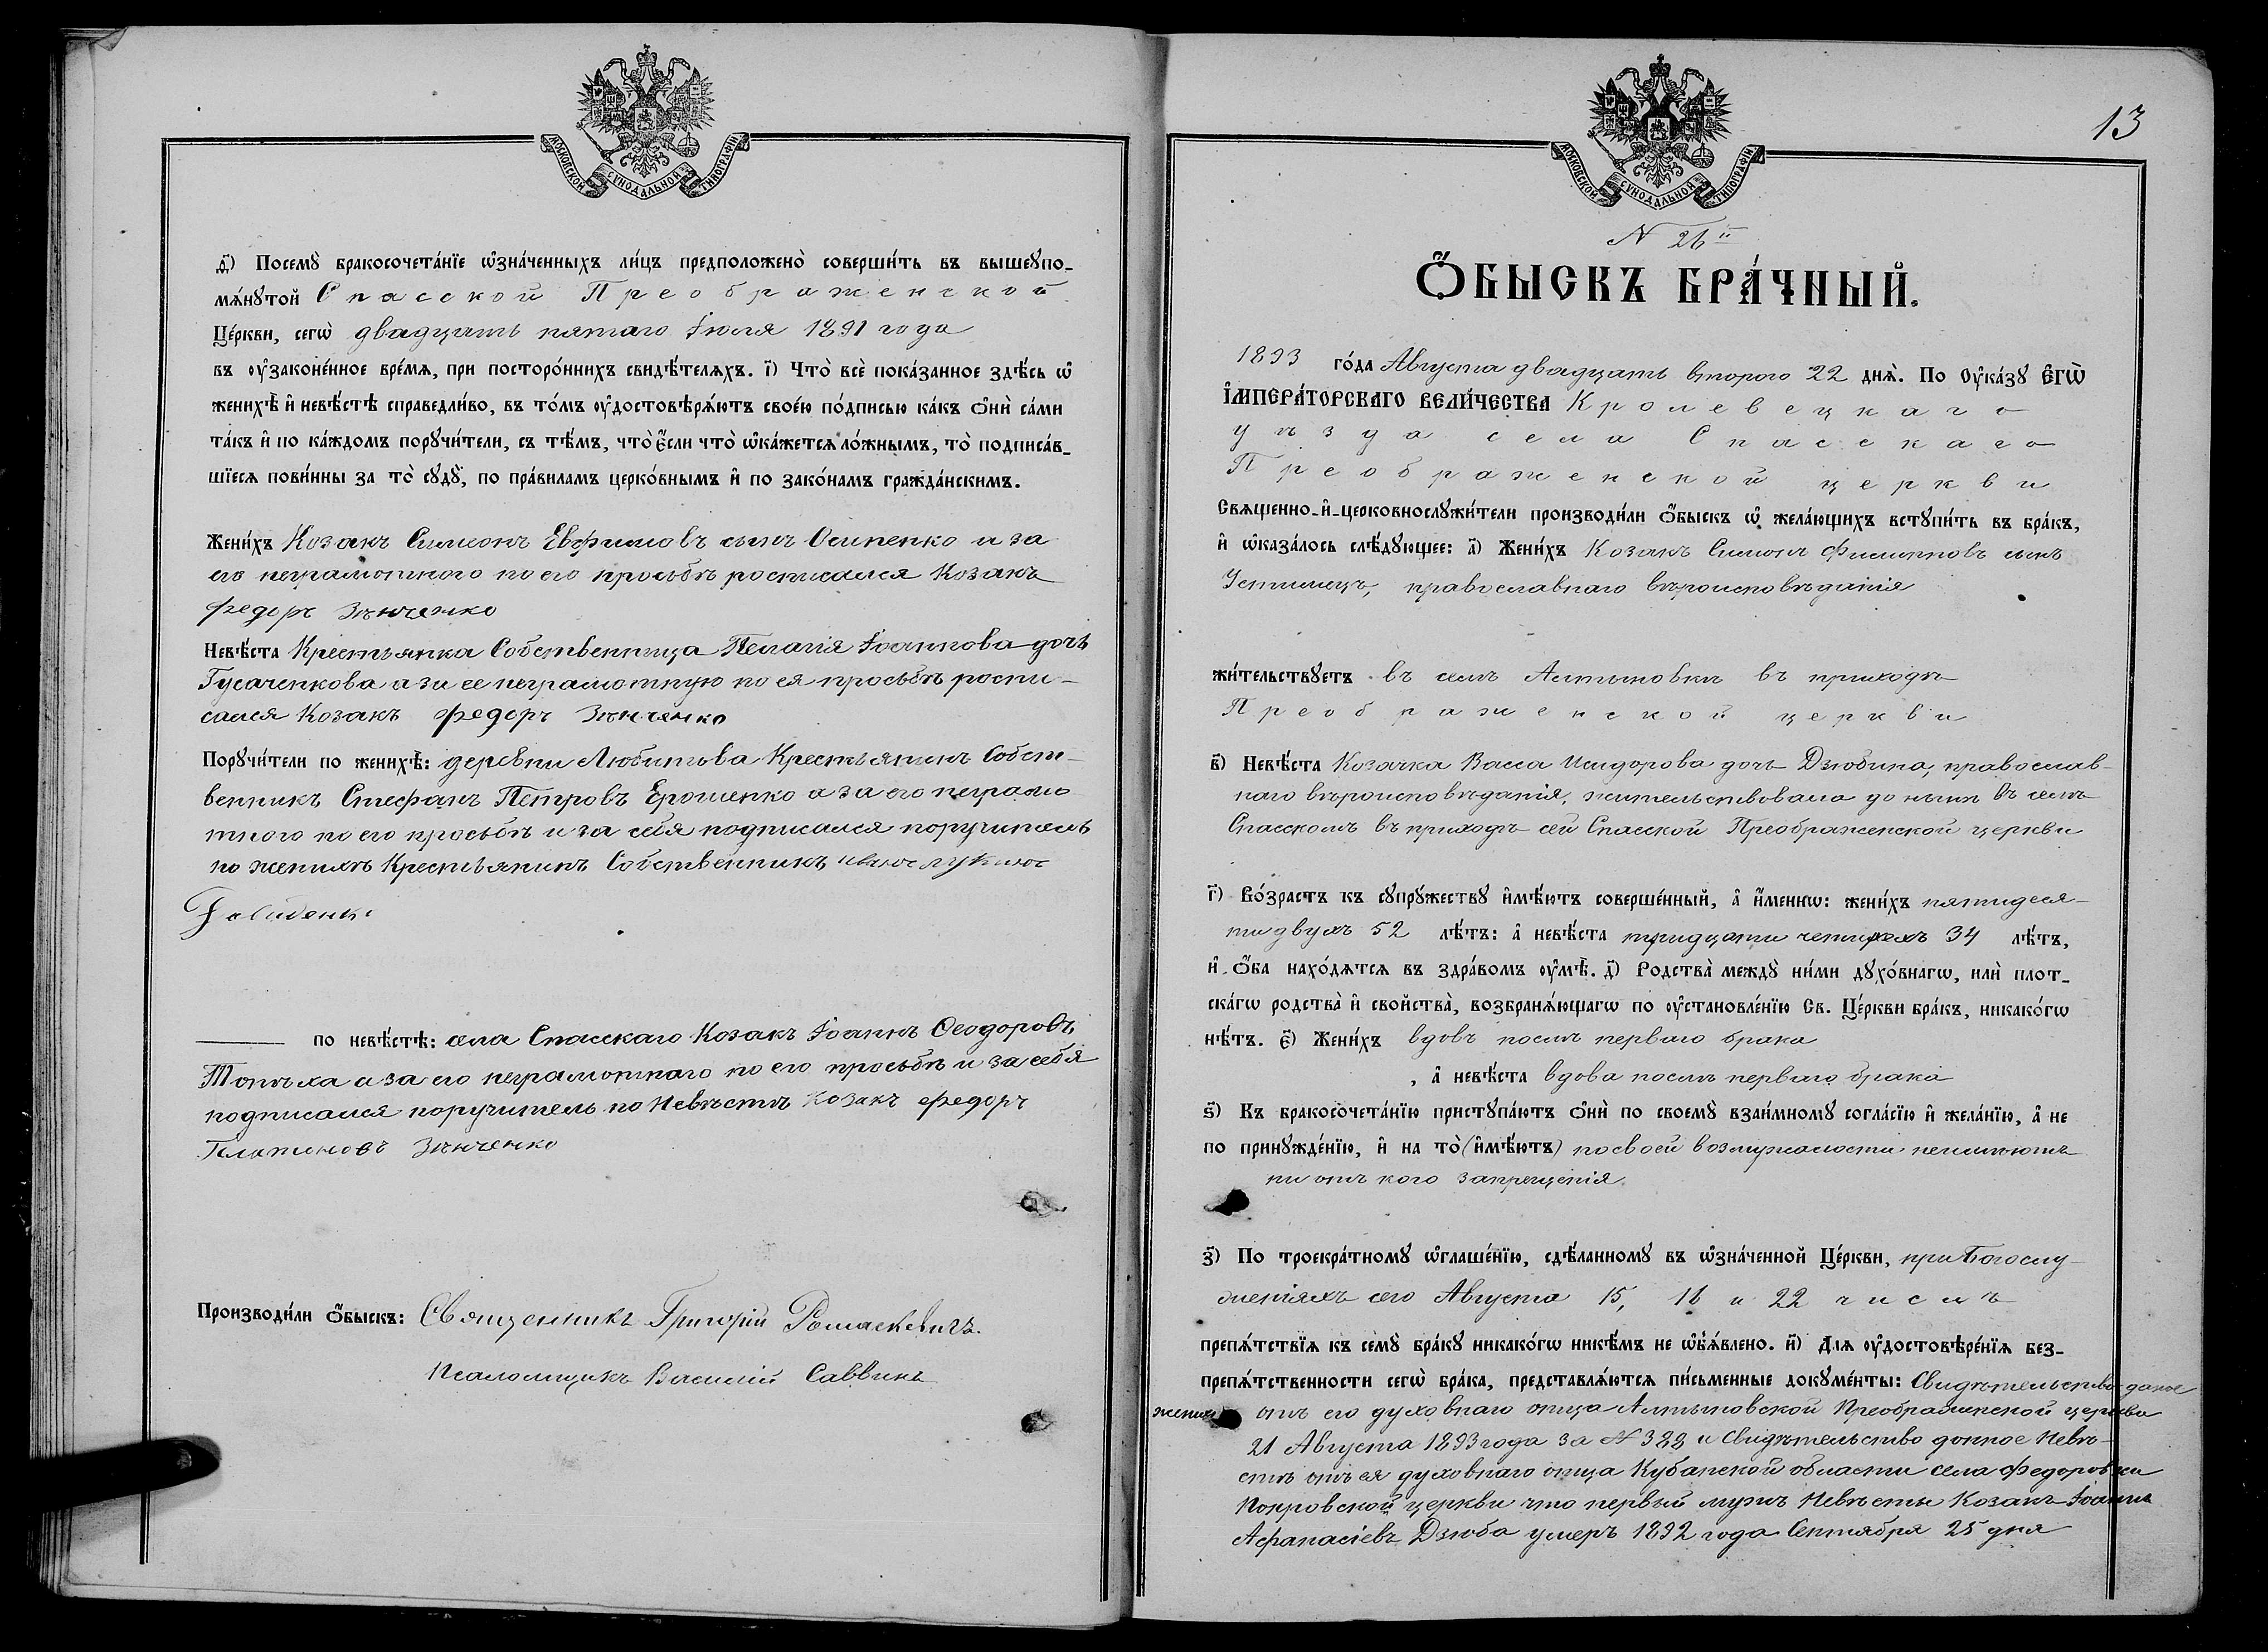 МОСКОВСКОЙ СѴНОДАЛЬНОЙ ТИПОГРАФІИ
д҃) Посемꙋ̀ бракосочета́нїе ѡ҆зна́ченныхъ ли́цъ предположено̀ соверши́ть въ вышеꙋпо-
мѧ́нꙋтой Спасской Преображенской
Це́ркви, сегѡ̀ двадцать пятаго Іюля 1891 года
въ ᲂу҆законе́нное вре́мѧ, при посторо́ннихъ свидѣ́телѧхъ. і҃) Что̀ всѐ пока́занное здѣ́сь ѡ҆
женихѣ̀ и҆ невѣ́стѣ справедли́во, въ то́мъ ᲂу҆достовѣрѧ́ютъ свое́ю по́дписью ка́къ ѻ҆нѝ са́ми
та́къ и҆ по ка́ждомъ порꙋчи́тели, съ тѣ́мъ, что̀ є҆́сли что̀ ѡ҆ка́жется ло́жнымъ, то̀ подписа́в-
шїеся пови́нны за то̀ сꙋдꙋ̀, по пра́виламъ церко́внымъ и҆ по зако́намъ гражда́нскимъ.
Жени́хъ Козакъ Симеонъ Евфимовъ сынъ Осипенко и за
его неграмотного по его просьбѣ росписался Козакъ
Федоръ Зѣнченко
Невѣ́ста Крестьянка Собственница Пелагія Іоаннова дочь
Гусаченкова а за ее неграмотную по ея просьбѣ роспи-
сался Козакъ Федоръ Зѣнченко
Порꙋчи́тели по женихѣ̀: деревни Любитова Крестьянинъ Собст-
венникъ Стефанъ Петровъ Ерошенко а за его неграмо
тного по его просьбѣ и за себя подписался поручитель
по женихѣ Крестьянинъ Собственникъ
по невѣ́стѣ: села Спасскаго Козакъ Іоаннъ Ѳеодоровъ
а за его неграмотнаго по его просьбѣ и за себя
подписался поручитель по Невѣстѣ Козакъ Федоръ
Платоновъ Зѣнченко
Производи́ли ѻ҆́быскъ: Священникъ Григорій Ромаскевичъ.
Псаломщикъ Василій Саввинъ
13
МОСКОВСКОЙ СѴНОДАЛЬНОЙ ТИПОГРАФІИ
N 26й
Ѻ҆́БЫСКЪ БРА́ЧНЫЙ.
1893 го́да Августа двадцать второго 22 днѧ̀. По Оу҆ка́зꙋ Є҆ГѠ̀
І҆МПЕРА́ТОРСКАГО ВЕЛИ́ЧЕСТВА Кролевецкаго
уѣзда села Спасскаго
Преображенской церкви
Свѧщенно-и҆-церковнослꙋжи́тели производи́ли ѻ҆́быскъ ѡ҆ жела́ющихъ встꙋпи́ть въ бра́къ,
и҆ ѡ҆каза́лось слѣ́дꙋющее: а҃) Жени́хъ Козакъ Симонъ Филиповъ сынъ
Устимецъ, православнаго вѣроисповѣданія
жи́тельствꙋетъ въ селѣ Алтыновкѣ въ приходѣ
Преображенской церкви
в҃) Невѣ́ста Козачка Васса Исидорова дочь Дзюбина, православ-
наго вѣроисповѣданія, жительствовала до нынѣ въ селѣ
Спасскомъ въ приходѣ сей Спасской Преображенской церкви
г҃) Во́зрастъ къ сꙋпрꙋ́жествꙋ и҆мѣ́ютъ соверше́нный, а҆ и҆́меннѡ: жени́хъ пятидеся-
ти двухъ 52 лѣ́тъ: а҆ невѣ́ста тридцати четырехъ 34 лѣ́тъ,
и҆ ѻ҆́ба нахо́дѧтся въ здра́вомъ ᲂу҆мѣ̀. д҃) Родства̀ междꙋ̀ ни́ми дꙋхо́внагѡ, илѝ плот-
ска́гѡ родства̀ и҆ свойства̀, возбранѧ́ющагѡ по ᲂу҆становле́нїю Св. Це́ркви бра́къ, никако́гѡ
нѣ́тъ. є҃) Жени́хъ вдовъ послѣ перваго брака
, а҆ невѣ́ста вдова послѣ перваго брака
ѕ҃) Къ бракосочета́нїю пристꙋпа́ютъ ѻ҆нѝ по своемꙋ̀ взаи́мномꙋ согла́сїю и҆ жела́нїю, а҆ не
по принꙋжде́нїю, и҆ на то̀ (и҆мѣ́ютъ) по своей возмужалости неимѣютъ
ни отъ кого запрещенія.
з҃) По троекра́тномꙋ ѡ҆глаше́нїю, сдѣ́ланномꙋ въ ѡ҆зна́ченной Це́ркви, при Богослу-
женіяхъ сего Августа 15, 16 и 22 числъ
препѧ́тствїѧ къ семꙋ̀ бра́кꙋ никако́гѡ никѣ́мъ не ѡ҆б̾ѧ́влено. и҃) Длѧ ᲂу҆достовѣре́нїѧ без-
препѧ́тственности сегѡ̀ бра́ка, представлѧ́ютсѧ пи́сьменные докꙋме́нты: Свидѣтельство даное
жениху отъ его духовнаго отца Алтыновской Преображенской церкви
21 Августа 1893 года за N 388 и Свидѣтельство данное Невѣ-
стѣ отъ ея духовнаго отца Кубанской области села Федоровки
Покровской церкви что первый мужъ Невѣсты Козакъ Іоаннъ
Афанасіевъ Дзюба умеръ 1892 года Сентября 25 дня